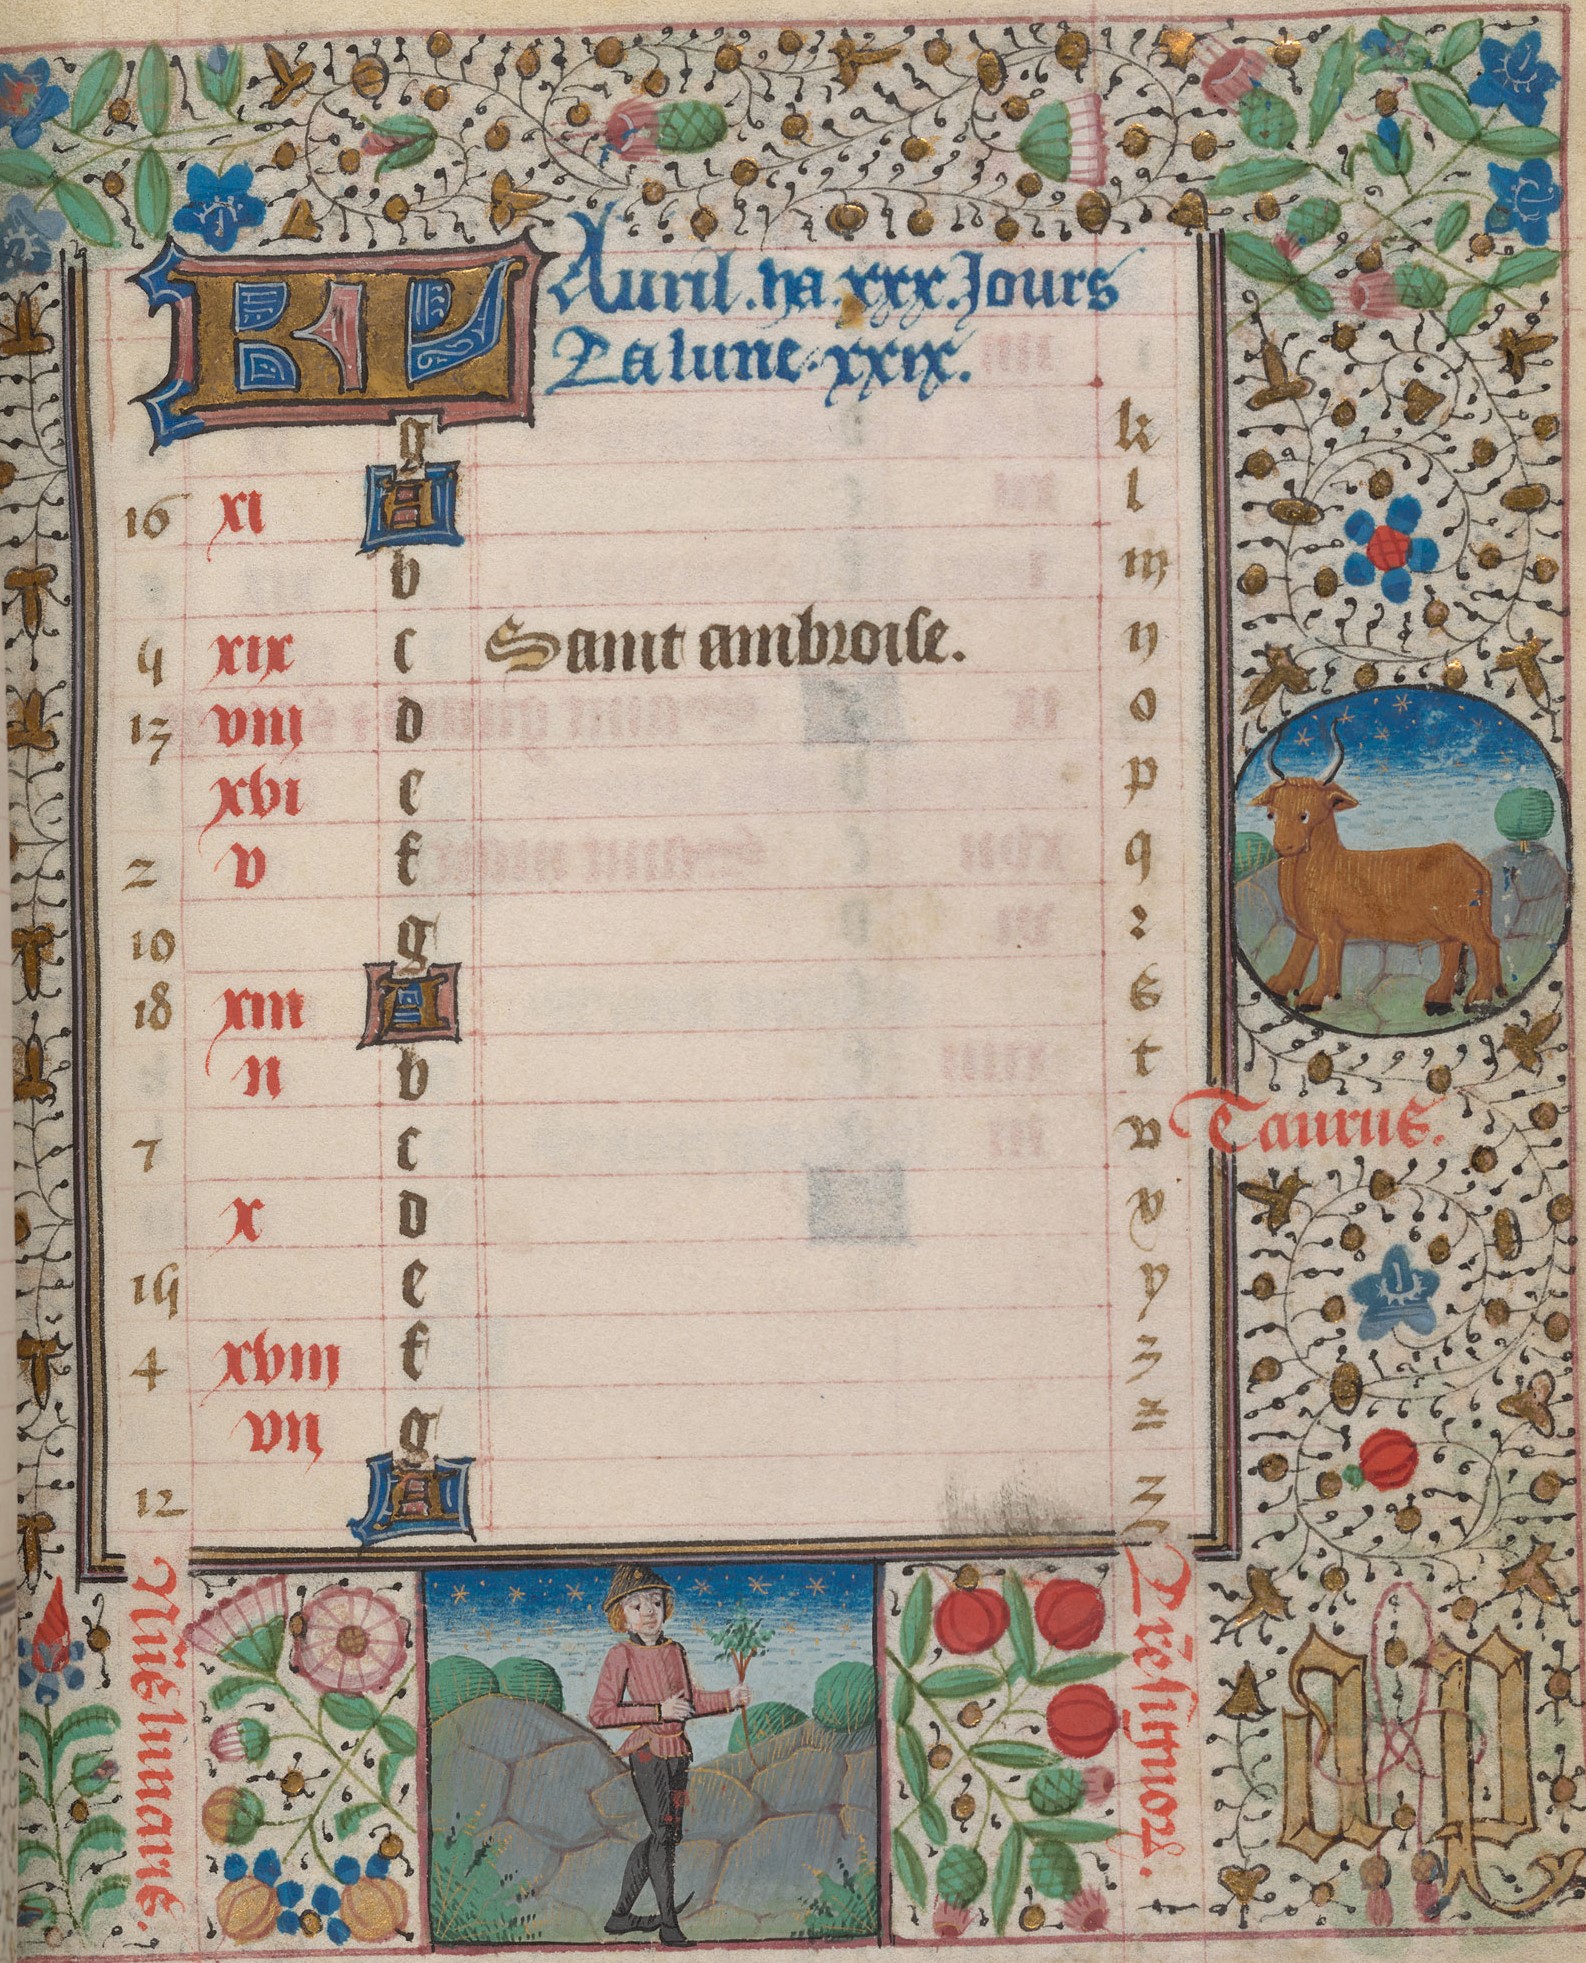 KL Auril. ha. xxx. Jours
La lune. xxix.
g k
16 xi A l
b m
4 xix c Saint ambroise. n
13 viii d o
xvi e p
2 v f q
10 g r
18 xiii A s
ii b t
7 c v
x d
14 e y
4 xviii f z
vii g
12 A
Taurus.